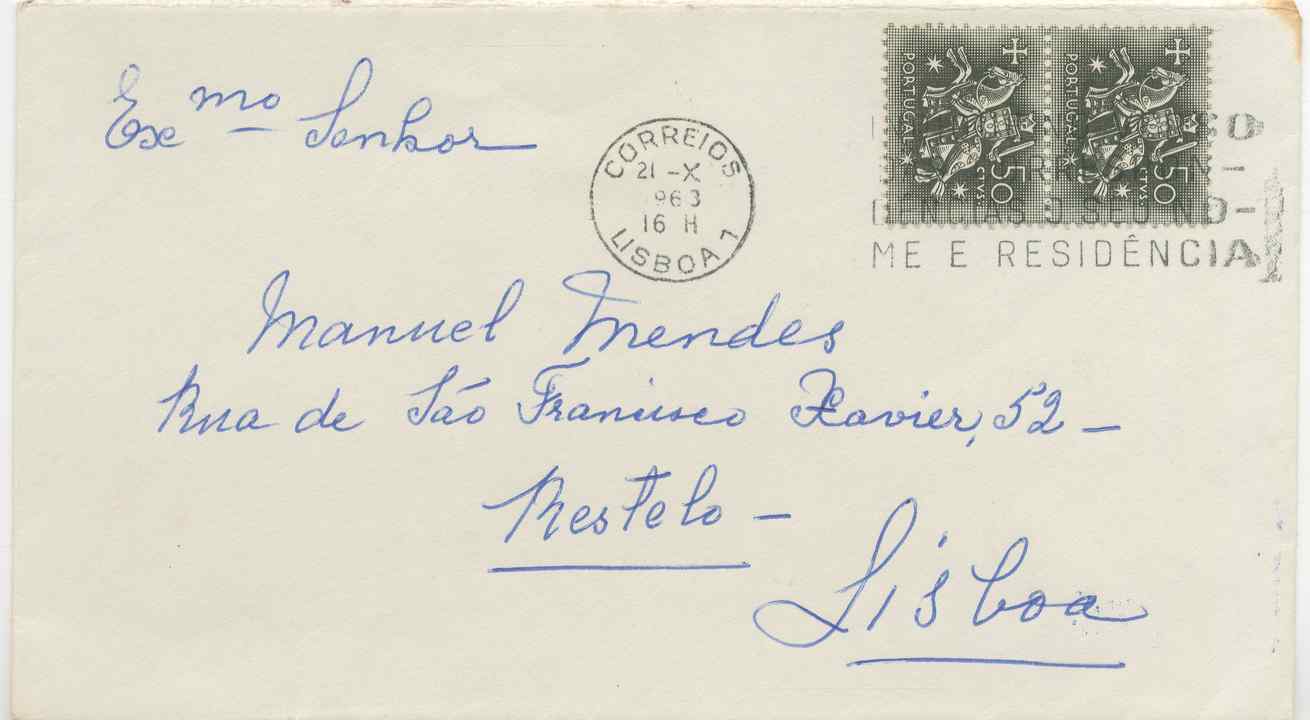 Ex mo Senhor
CORREIOS
21-X
963
16 H
LISBOA 1
PORTUGAL
CTVS.
50
PORTUGAL
CTVS.
50
O SEU NO-
ME E RESIDÊNCIA
Manuel Mendes
Rua de São Francisco Xavier, 52 -
Restelo -
Lisboa